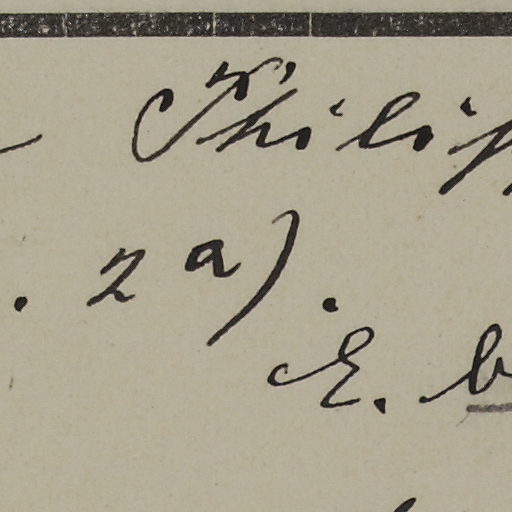 Philip
. 2 a).
E. b